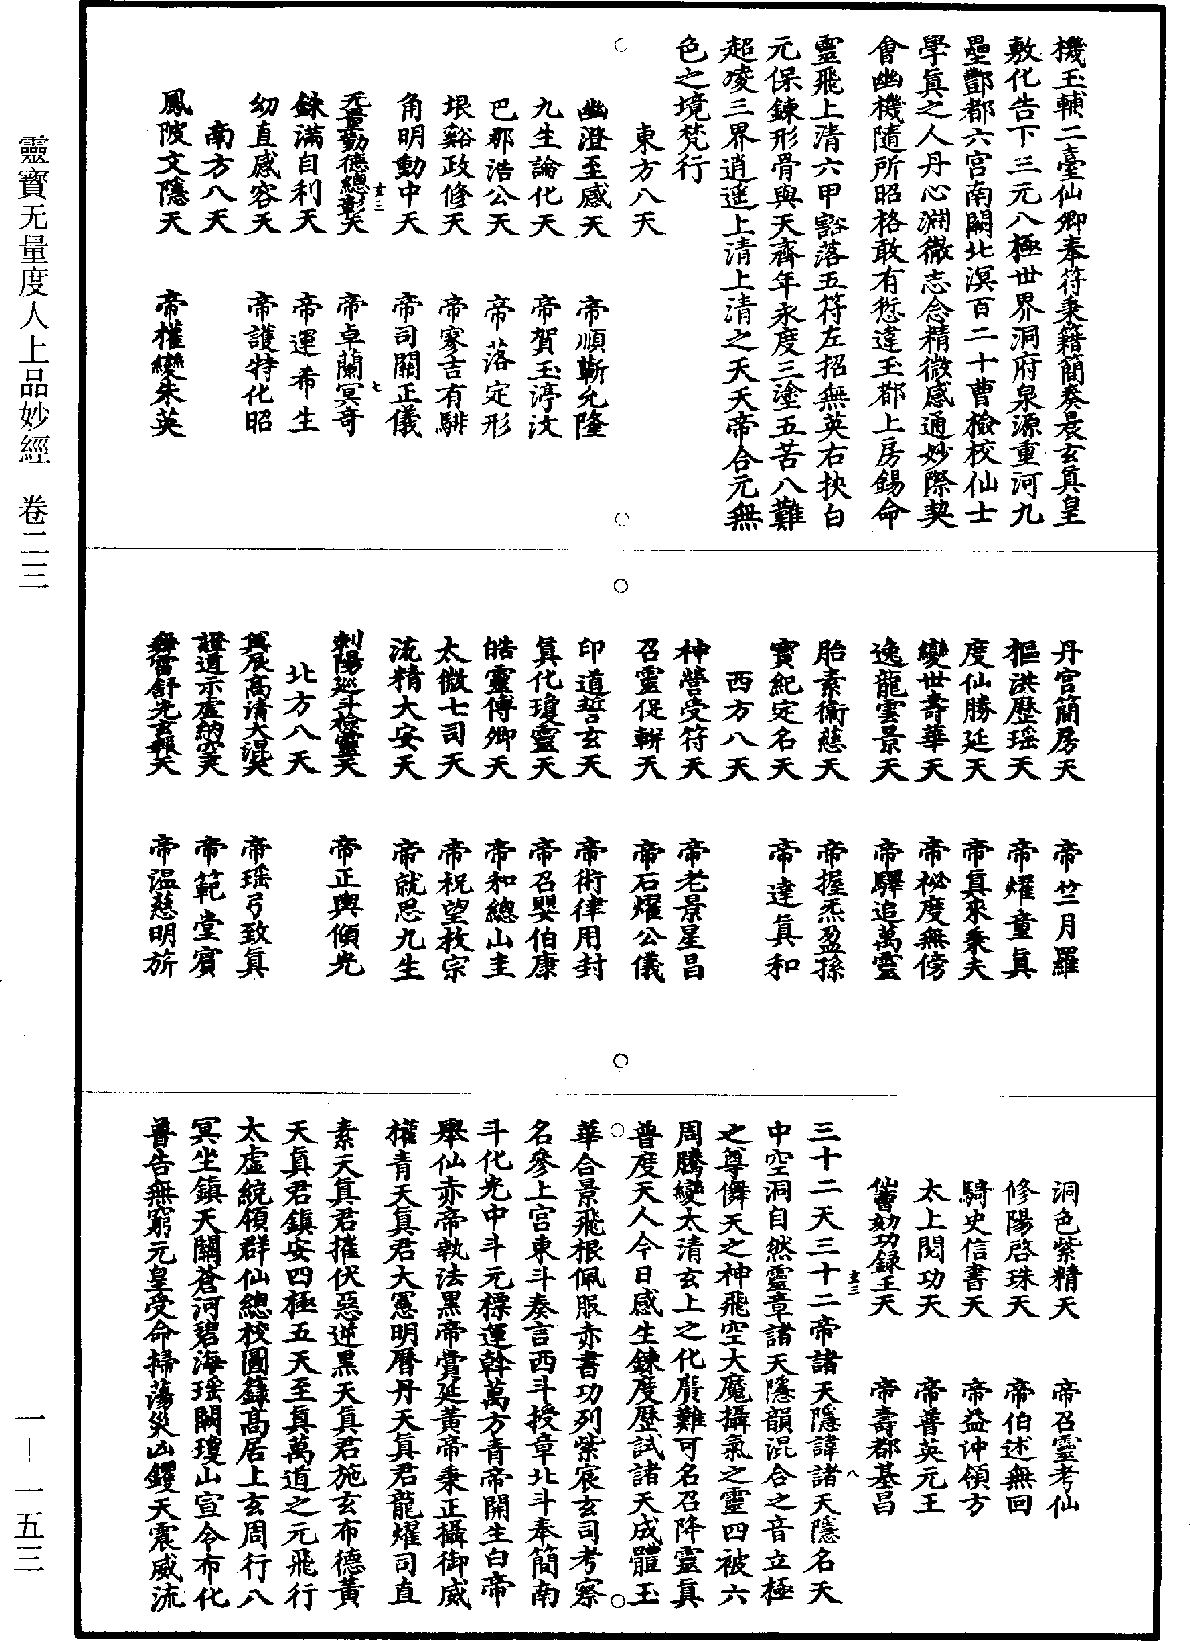 機玉輔二臺仙卿奉符秉籍簡奏晨玄真皇
敷化告下三元八極世界洞府泉源重河九
壘酆都六宮南闕北溟百二十曹檢校仙士
學真之人丹心淵微志念精微感通妙際契
會幽機隨所昭格敢有愆違玉都上房錫命
靈飛上清六甲豁落五符左招無英右挾白
元保鍊形骨與天齊年永度三塗五苦八難
超凌三界逍遙上清上清之天天帝合元無
色之境梵行
東方八天
幽澄至感天　帝順漸允隆
九生論化天　帝賀玉渟汶
巴那浩公天　帝落定形
垠谿政修天　帝寥吉有騑
角明動中天　帝司關正儀
無量勳德總彰天　帝卓蘭冥奇
錬滿自利天　帝運希生
幼直感容天　帝護特化昭
南方八天
鳳陂文隱天　帝權變朱英
丹宮簡房天　帝竺月羅
樞洪歷瑶天　帝燿童真
度仙勝延天　帝真來乘夫
變世壽華天　帝祕度無傍
逸龍雲景天　帝驛追萬靈
胎素衞慈天　帝握炁盈孫
寶紀定名天　帝達真和
西方八天
神營受符天　帝老景星昌
召靈促軿天　帝石燿公儀
印道誓玄天　帝術律用封
真化瓊靈天　帝召嬰伯康
皓靈傳卿天　帝和總山主
太微七司天　帝祝望救宗
流精大安天　帝就思九生
刺陽巡斗檢靈天　帝正輿傾光
北方八天
真辰高清大混天　帝瑶弓致真
證道示虛納空天　帝範堂賓
舒光玄報天　帝温慈明旂
洞色紫精天　帝召靈考仙
修陽啓珠天　帝伯述無回
騎史信書天　帝益沖領方
太上閱功天　帝普英元王
仙曹効功錄王天　帝壽都基昌
三十二天三十二帝諸天隱諱諸天隱名天
中空洞自然靈章諸天隱韻混合之音立極
之尊儛天之神飛空大魔攝氣之靈四被六
周騰變太清玄上之化廣難可名召降靈真
普度天人今日感生鍊度歷試諸天成體玉
華合景飛根佩服赤書功列紫宸玄司考察
名參上宮東斗奏言西斗授章北斗奉簡南
斗化光中斗元標運斡萬方青帝開生白帝
舉仙赤帝執法黑帝賞延黃帝秉正攝御威
權青天真君大憲明曆丹天真君龍燿司直
素天真君摧伏惡逆黑天真君施玄布德黃
天真君鎮安四極五天至真萬道之元飛行
太虛統領群仙總校圖籙高居上玄周行八
冥坐鎮天關蒼河碧海瑶闕瓊山宣令布化
普告無窮元皇受命掃蕩災凶鑼天震威流
靈寶无量度人上品妙經　卷二三
一—一五三